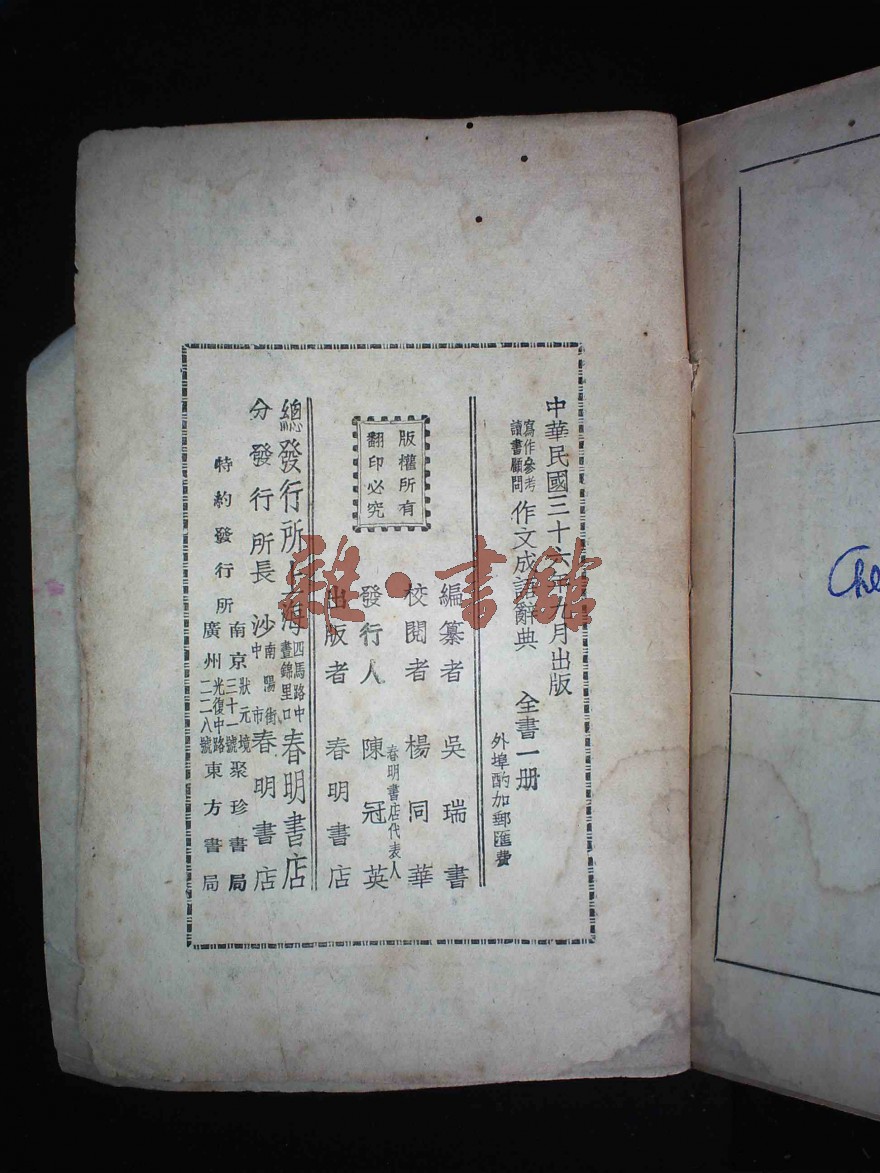 中華民國三十六年九月出版
寫作參考
讀書顧問
作文成語辭典 全書一册
外埠酌加郵匯費
版權所有
翻印必究
編纂者 吳瑞書
校閱者 楊同華
春明書店代表人
發行人 陳冠英
出版者 春明書店
總發行所上海 四馬路中 晝錦里口 春明書店
分發行所長沙 南陽街 中市 春明書店
特約發行所
南京 狀元境 三十一號 聚珍書局
廣州 光復中路 二二八號 東方書局
雜·書館
Che